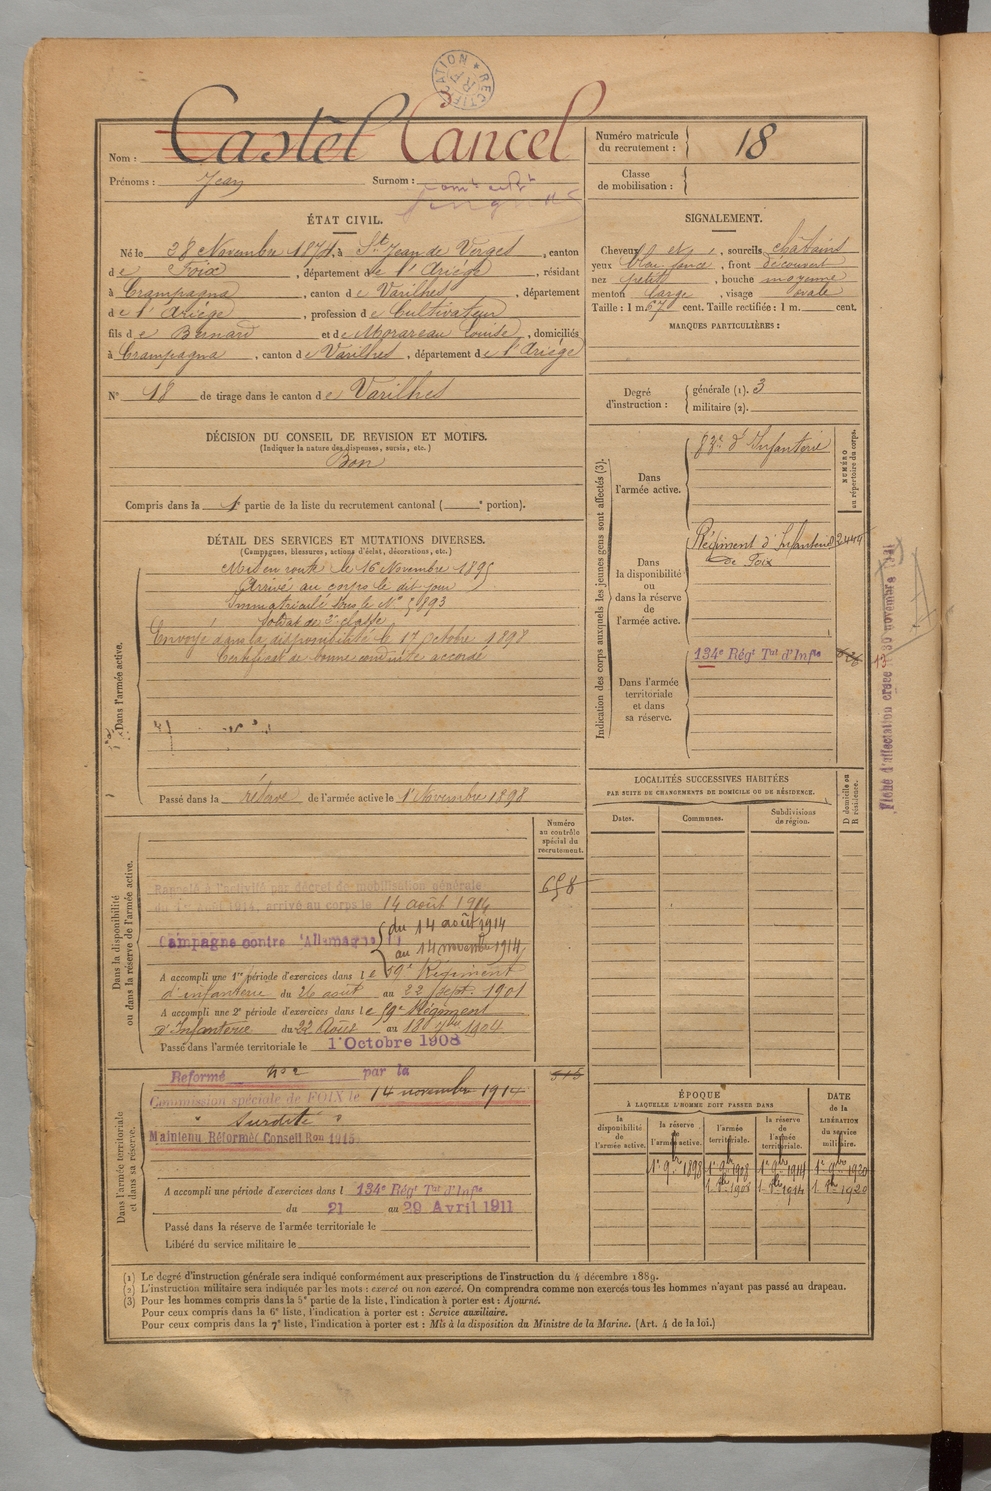 RECTIFICATION
Nom : Castel Cancel
Prénoms : Jean Surnom :
Numéro matricule du recrutement : 18
Classe de mobilisation :
ÉTAT CIVIL.
Né le 28 Novembre 1874, à St Jean de Verges, canton
de Foix, département de l'Ariège, résidant
à Crampagna, canton de Varilhes, département
de l'Ariège, profession de Cultivateur
fils de Bernard et de Morareau Louise, domiciliés
à Crampagna, canton de Varilhes, département de l'Ariège
N° 18 de tirage dans le canton de Varilhes
SIGNALEMENT.
Cheveux et, sourcils châtains
yeux foncé, front découvert
nez petit, bouche moyenne
menton large, visage ovale
Taille : 1 m. 67 cent. Taille rectifiée : 1 m. cent.
MARQUES PARTICULIÈRES :
Degré d'instruction :
générale (1). 3
militaire (2).
DÉCISION DU CONSEIL DE REVISION ET MOTIFS.
(Indiquer la nature des dispenses, sursis, etc.)
Bon
Compris dans la 1e partie de la liste du recrutement cantonal ( e portion).
DÉTAIL DES SERVICES ET MUTATIONS DIVERSES.
(Campagnes, blessures, actions d'éclat, décorations, etc.)
Dans l'armée active.
Mis en route le 16 Novembre 1895
Arrivé au corps le dit jour
Immatriculé sous le N° 3893
Soldat de 2e classe
Envoyé dans la disponibilité le 17 Octobre 1898
Certificat de bonne conduite accordé
Passé dans la réserve de l'armée active le 1er Novembre 1898
Indication des corps auxquels les jeunes gens sont affectés (3).
NUMÉRO au répertoire du corps.
Dans l'armée active.
d'Infanterie
Dans la disponibilité ou dans la réserve de l'armée active.
Régiment d'Infanterie 2444
de Foix
Dans l'armée territoriale et dans sa réserve.
134e Régt Tal d'Infie
Fiche d'affectation créée 30 novembre
LOCALITÉS SUCCESSIVES HABITÉES
PAR SUITE DE CHANGEMENTS DE DOMICILE OU DE RÉSIDENCE.
Dates. Communes. Subdivisions de région. D domicile ou R résidence.
Dans la disponibilité ou dans la réserve de l'armée active.
Numéro au contrôle spécial du recrutement.
658
Rappelé à l'activité par décret de mobilisation générale
du 1er Août 1914, arrivé au corps le 14 août 1914
Campagne contre l'Allemagne du 14 août 1914
au 14 novembre 1914
A accompli une 1re période d'exercices dans le 59e Régiment
d'infanterie du 26 août au 22 sept. 1901
A accompli une 2e période d'exercices dans le 59e Régiment
d'Infanterie du 22 Août au 18 7bre 1904
Passé dans l'armée territoriale le 1er Octobre 1908
Dans l'armée territoriale et dans sa réserve.
Réformé n° 2 par la
Commission spéciale de FOIX le 14 novembre 1914
" Surdité "
Maintenu Réformé Conseil Ron 1915
A accompli une période d'exercices dans l 134e Régt Tal d'Infie
du 21 au 29 Avril 1911
Passé dans la réserve de l'armée territoriale le
Libéré du service militaire le
ÉPOQUE
À LAQUELLE L'HOMME DOIT PASSER DANS
la disponibilité de l'armée active. la réserve de l'armée active. l'armée territoriale. la réserve de l'armée territoriale.
DATE de la LIBÉRATION du service militaire.
1er 9bre 1898 1er 9bre 1908 1er 9bre 1914 1er 9bre 1920
1er 8bre 1908 1er 8bre 1914 1er 8bre 1920
(1) Le degré d'instruction générale sera indiqué conformément aux prescriptions de l'instruction du 4 décembre 1889.
(2) L'instruction militaire sera indiquée par les mots : exercé ou non exercé. On comprendra comme non exercés tous les hommes n'ayant pas passé au drapeau.
(3) Pour les hommes compris dans la 5e partie de la liste, l'indication à porter est : Ajourné.
Pour ceux compris dans la 6e liste, l'indication à porter est : Service auxiliaire.
Pour ceux compris dans la 7e liste, l'indication à porter est : Mis à la disposition du Ministre de la Marine. (Art. 4 de la loi.)